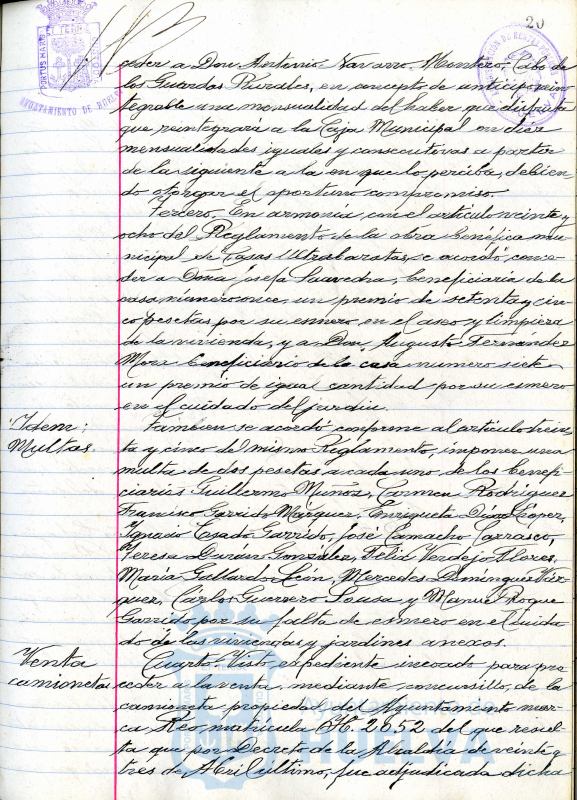 20
ceder a Don Antonio Navarro Montero, Cabo de
los Guardas Rurales, en concepto de anticipo rein
tegrable una mensualidad del haber que disfruta
que reintegrará a la Caja Municipal en diez
mensualidades iguales y consecutivas a partir
de la siguiente a la en que lo perciba, debien
do otorgar el oportuno compromiso.
Tercero. En armonía con el artículo veinte y
ocho del Reglamento de la obra benéfica mu
nicipal de Casas Ultrabaratas, se acordó conce
der a Doña Josefa Saavedra, beneficiaria de la
casa número once, un premio de setenta y cin
co pesetas por su esmero en el aseo y limpieza
de la vivienda, y a Don Augusto Fernandez
beneficiario de la casa numero siete
un premio de igual cantidad por su esmero
en el cuidado del jardin.
Idem:
Multas.
Tambien se acordó conforme al artículo trein
ta y cinco del mismo Reglamento, imponer una
multa de dos pesetas a cada uno de los benefi
ciarios Guillermo Muñoz, Carmen Rodriguez
Francisco Garrido Márquez, Enriqueta López,
Ignacio Casado Garrido, José Camacho Carrasco,
Teresa Durán González, Felix Verdejo Flores,
María Gallardo León, Mercedes Dominguez Váz
quez, Carlos Guerrero Sousa y Manuel Roque
Garrido por su falta de esmero en el cuida
do de las viviendas y jardines anexos.
Venta
camionetas
Cuarto. Visto expediente incoado para pro
ceder a la venta, mediante concursillo, de la
camioneta propiedad del Ayuntamiento mar
ca Reo matrícula H. 2052 del que resul
ta que por Decreto de la Alcaldía de veinte y
tres de Abril ultimo, fue adjudicada dicha
HUELVA